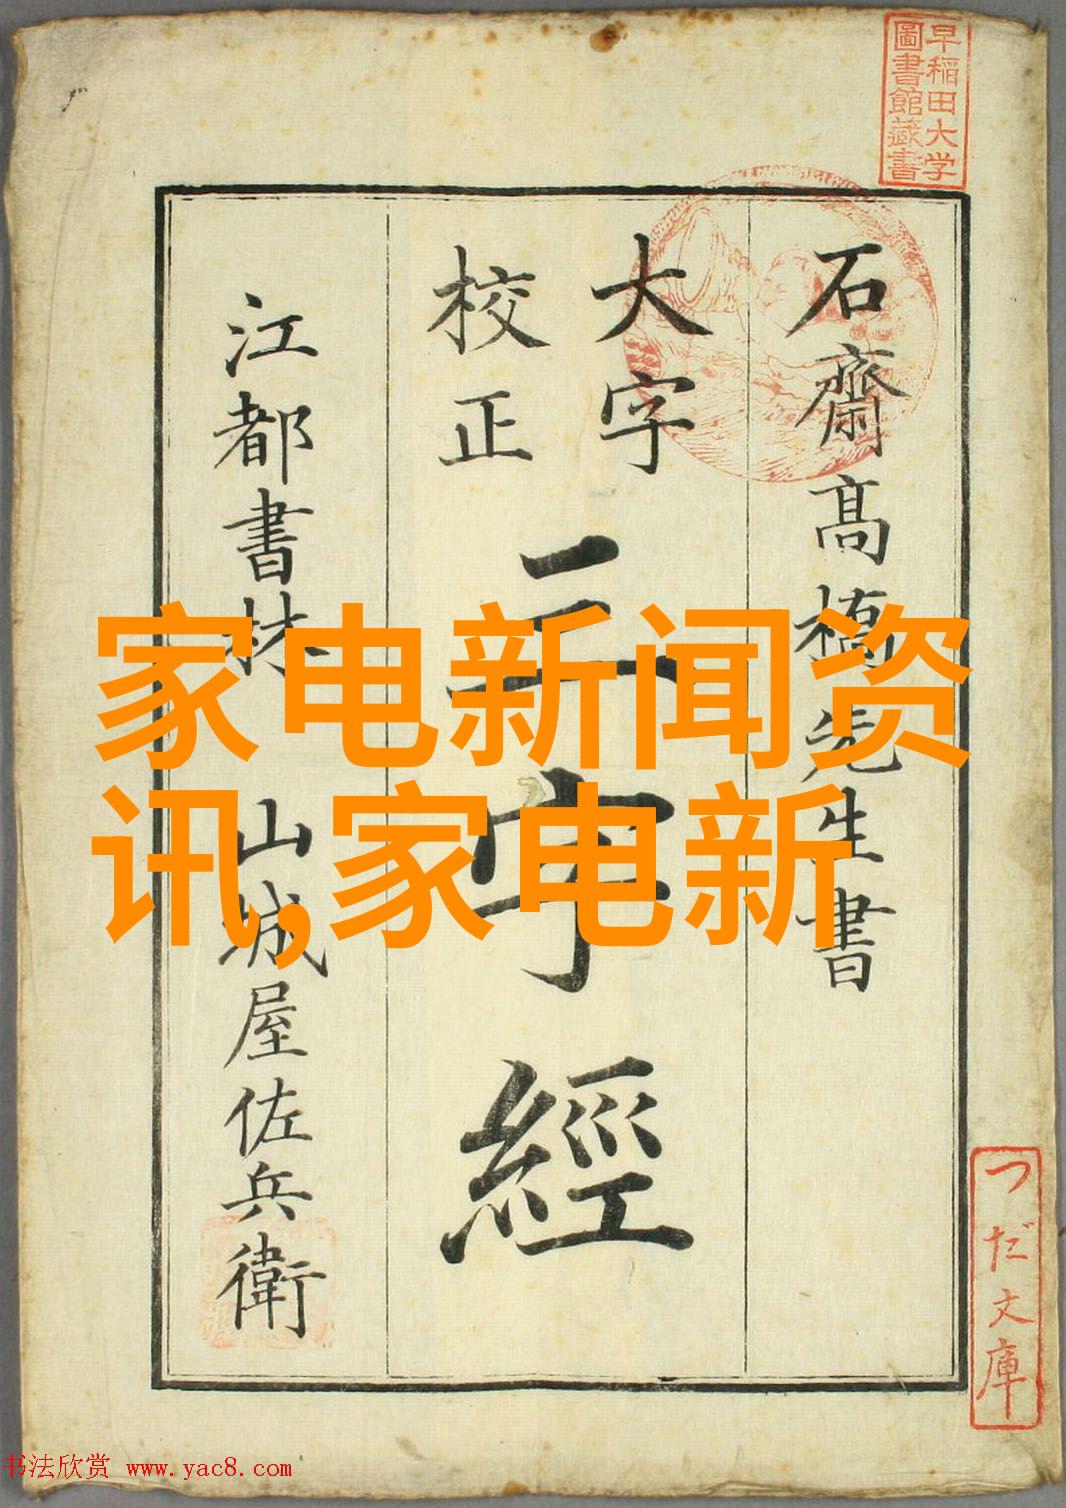 早稲田大学
圖書館藏書
石齋高橋先生書
大字
校正
三字經
江都書林 山城屋佐兵衛
家电新闻资
讯,家电新
つだ文庫
书法欣赏 www.yac8.com